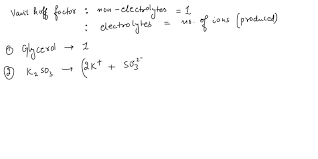 Van't hoff factor : non-electrolytes = 1
: electrolytes = no. of ions (produced)
① Glycerol → 1
② K₂SO₃ → (2K⁺ + SO₃²⁻